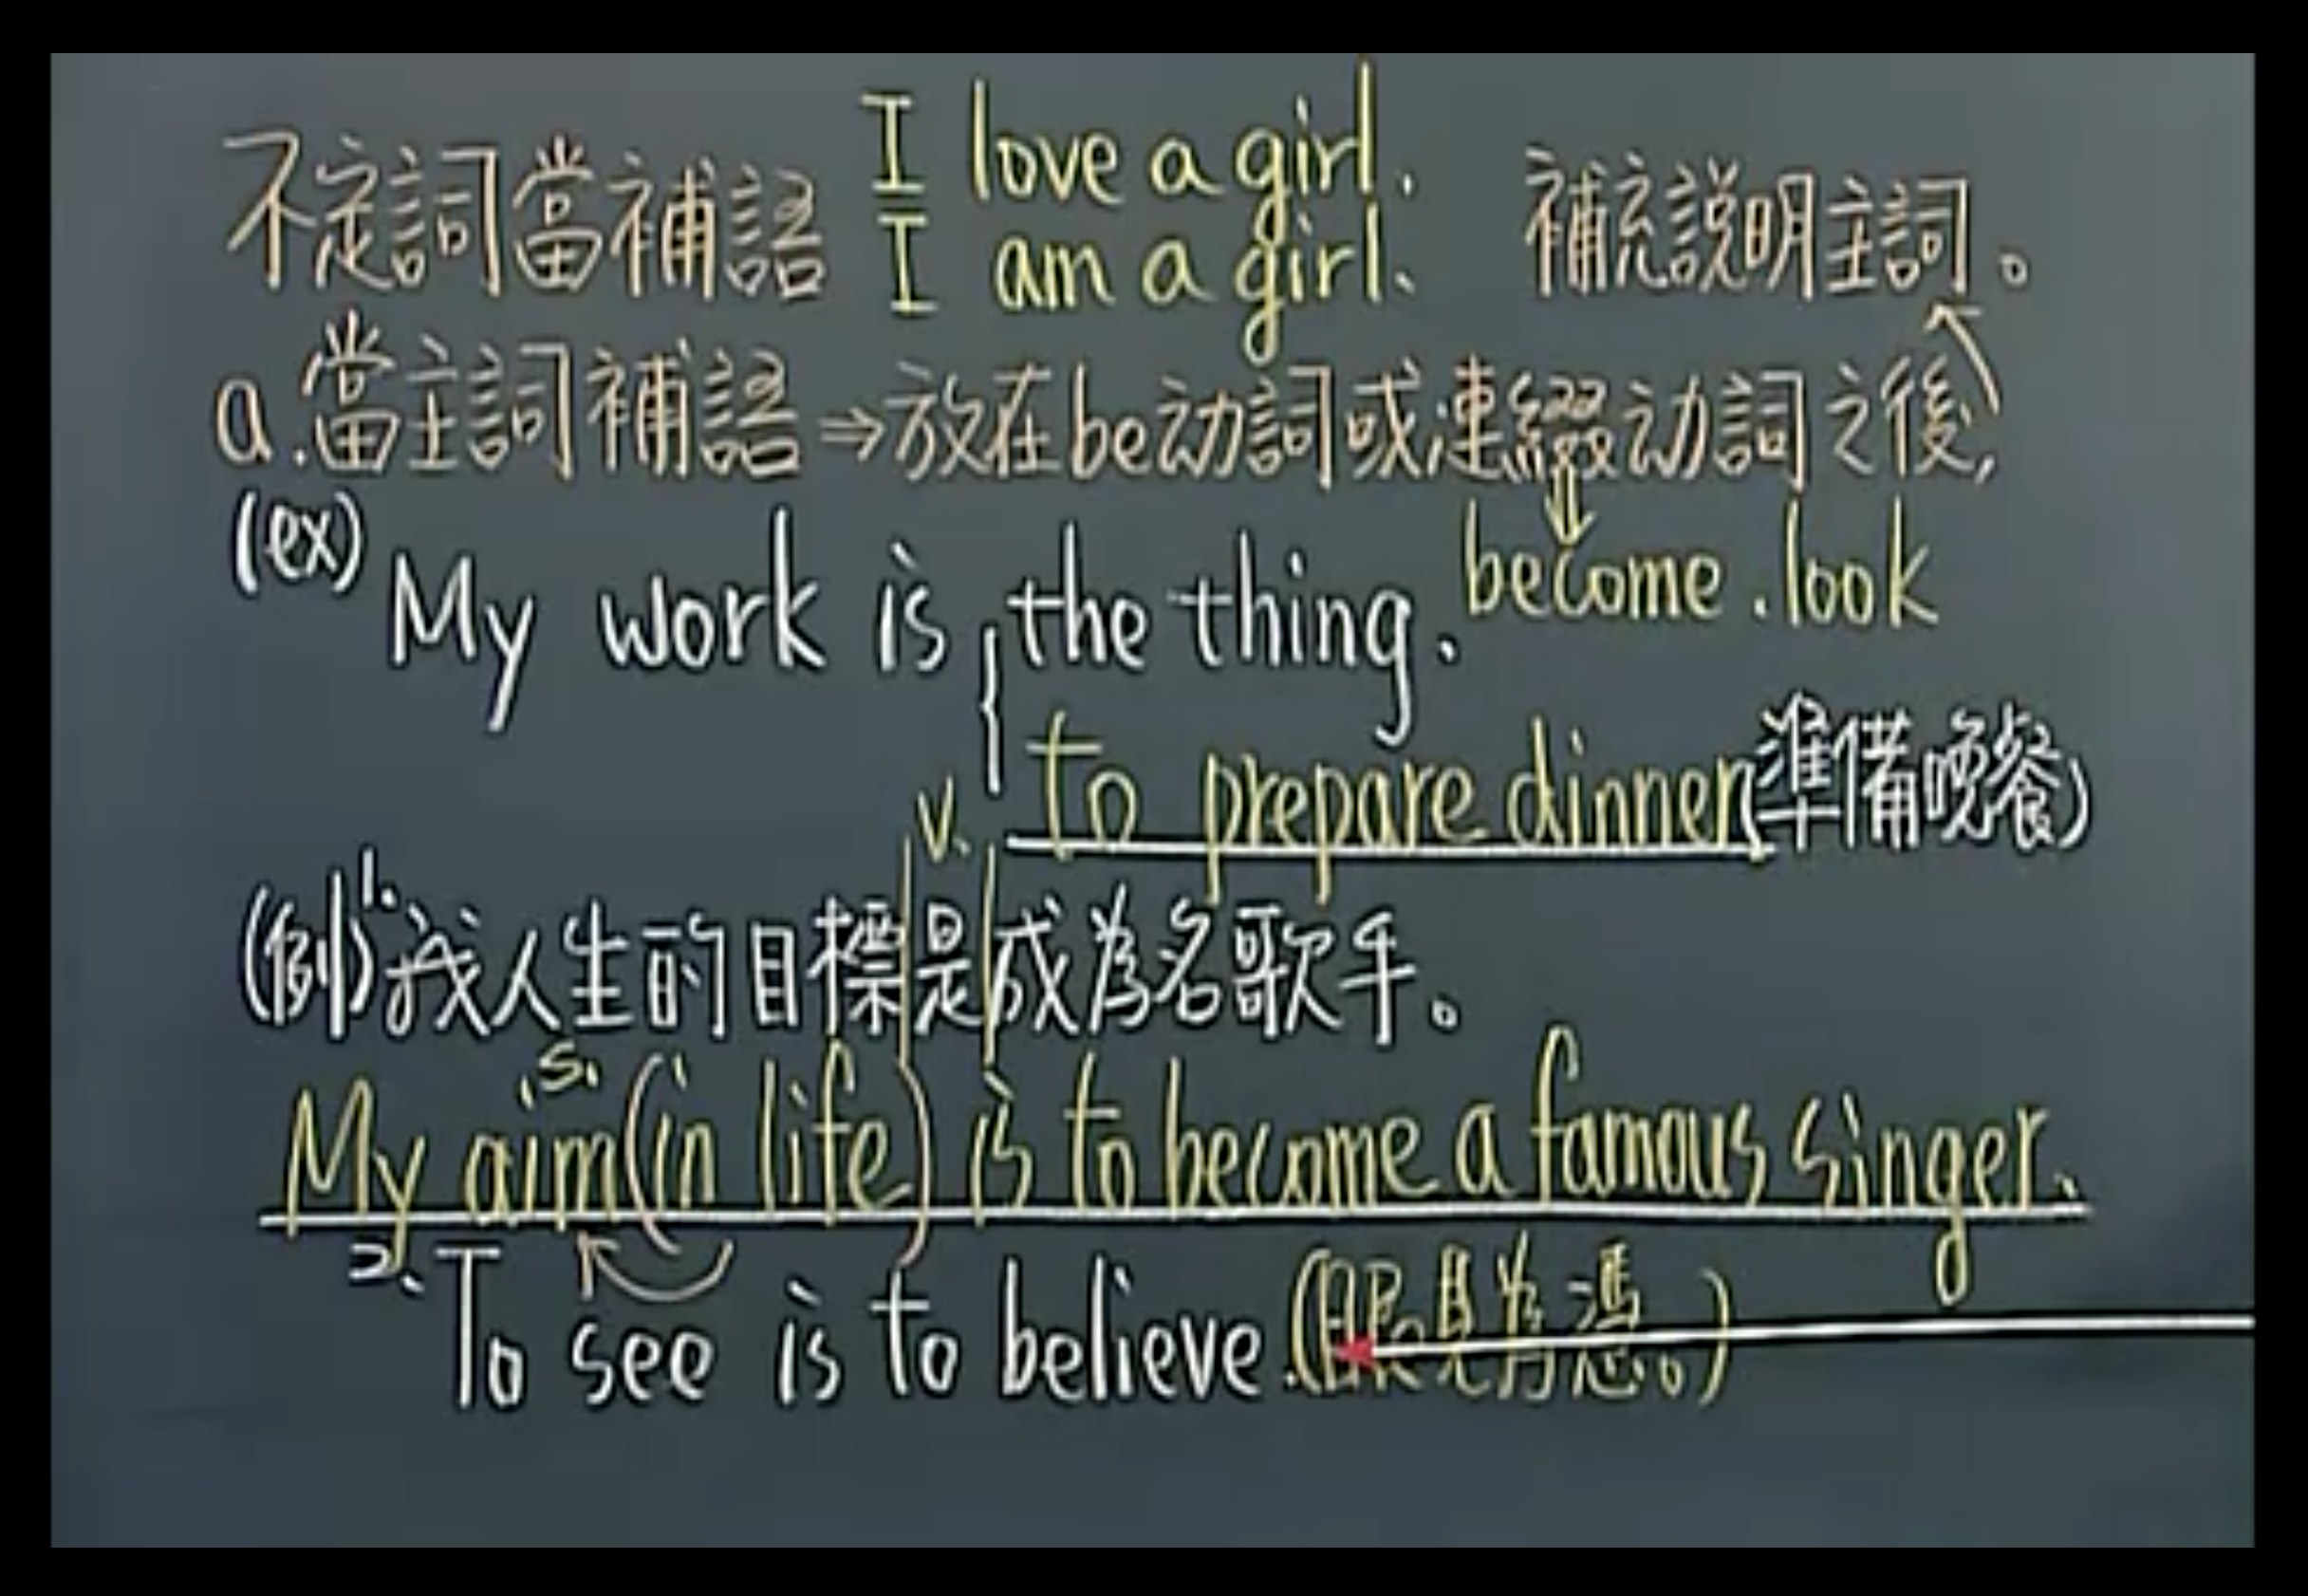 不定詞當補語 I love a girl.
I am a girl. 補充説明主詞。
a.當主詞補語⇒放在be动詞或連綴动詞之後,
become.look
(ex) My work is the thing.
to prepare dinner(準備晚餐)
v.
(例)1.我人生的目標是成為名歌手。
s.
My aim(in life) is to become a famous singer.
2.To see is to believe.(眼見為憑。)